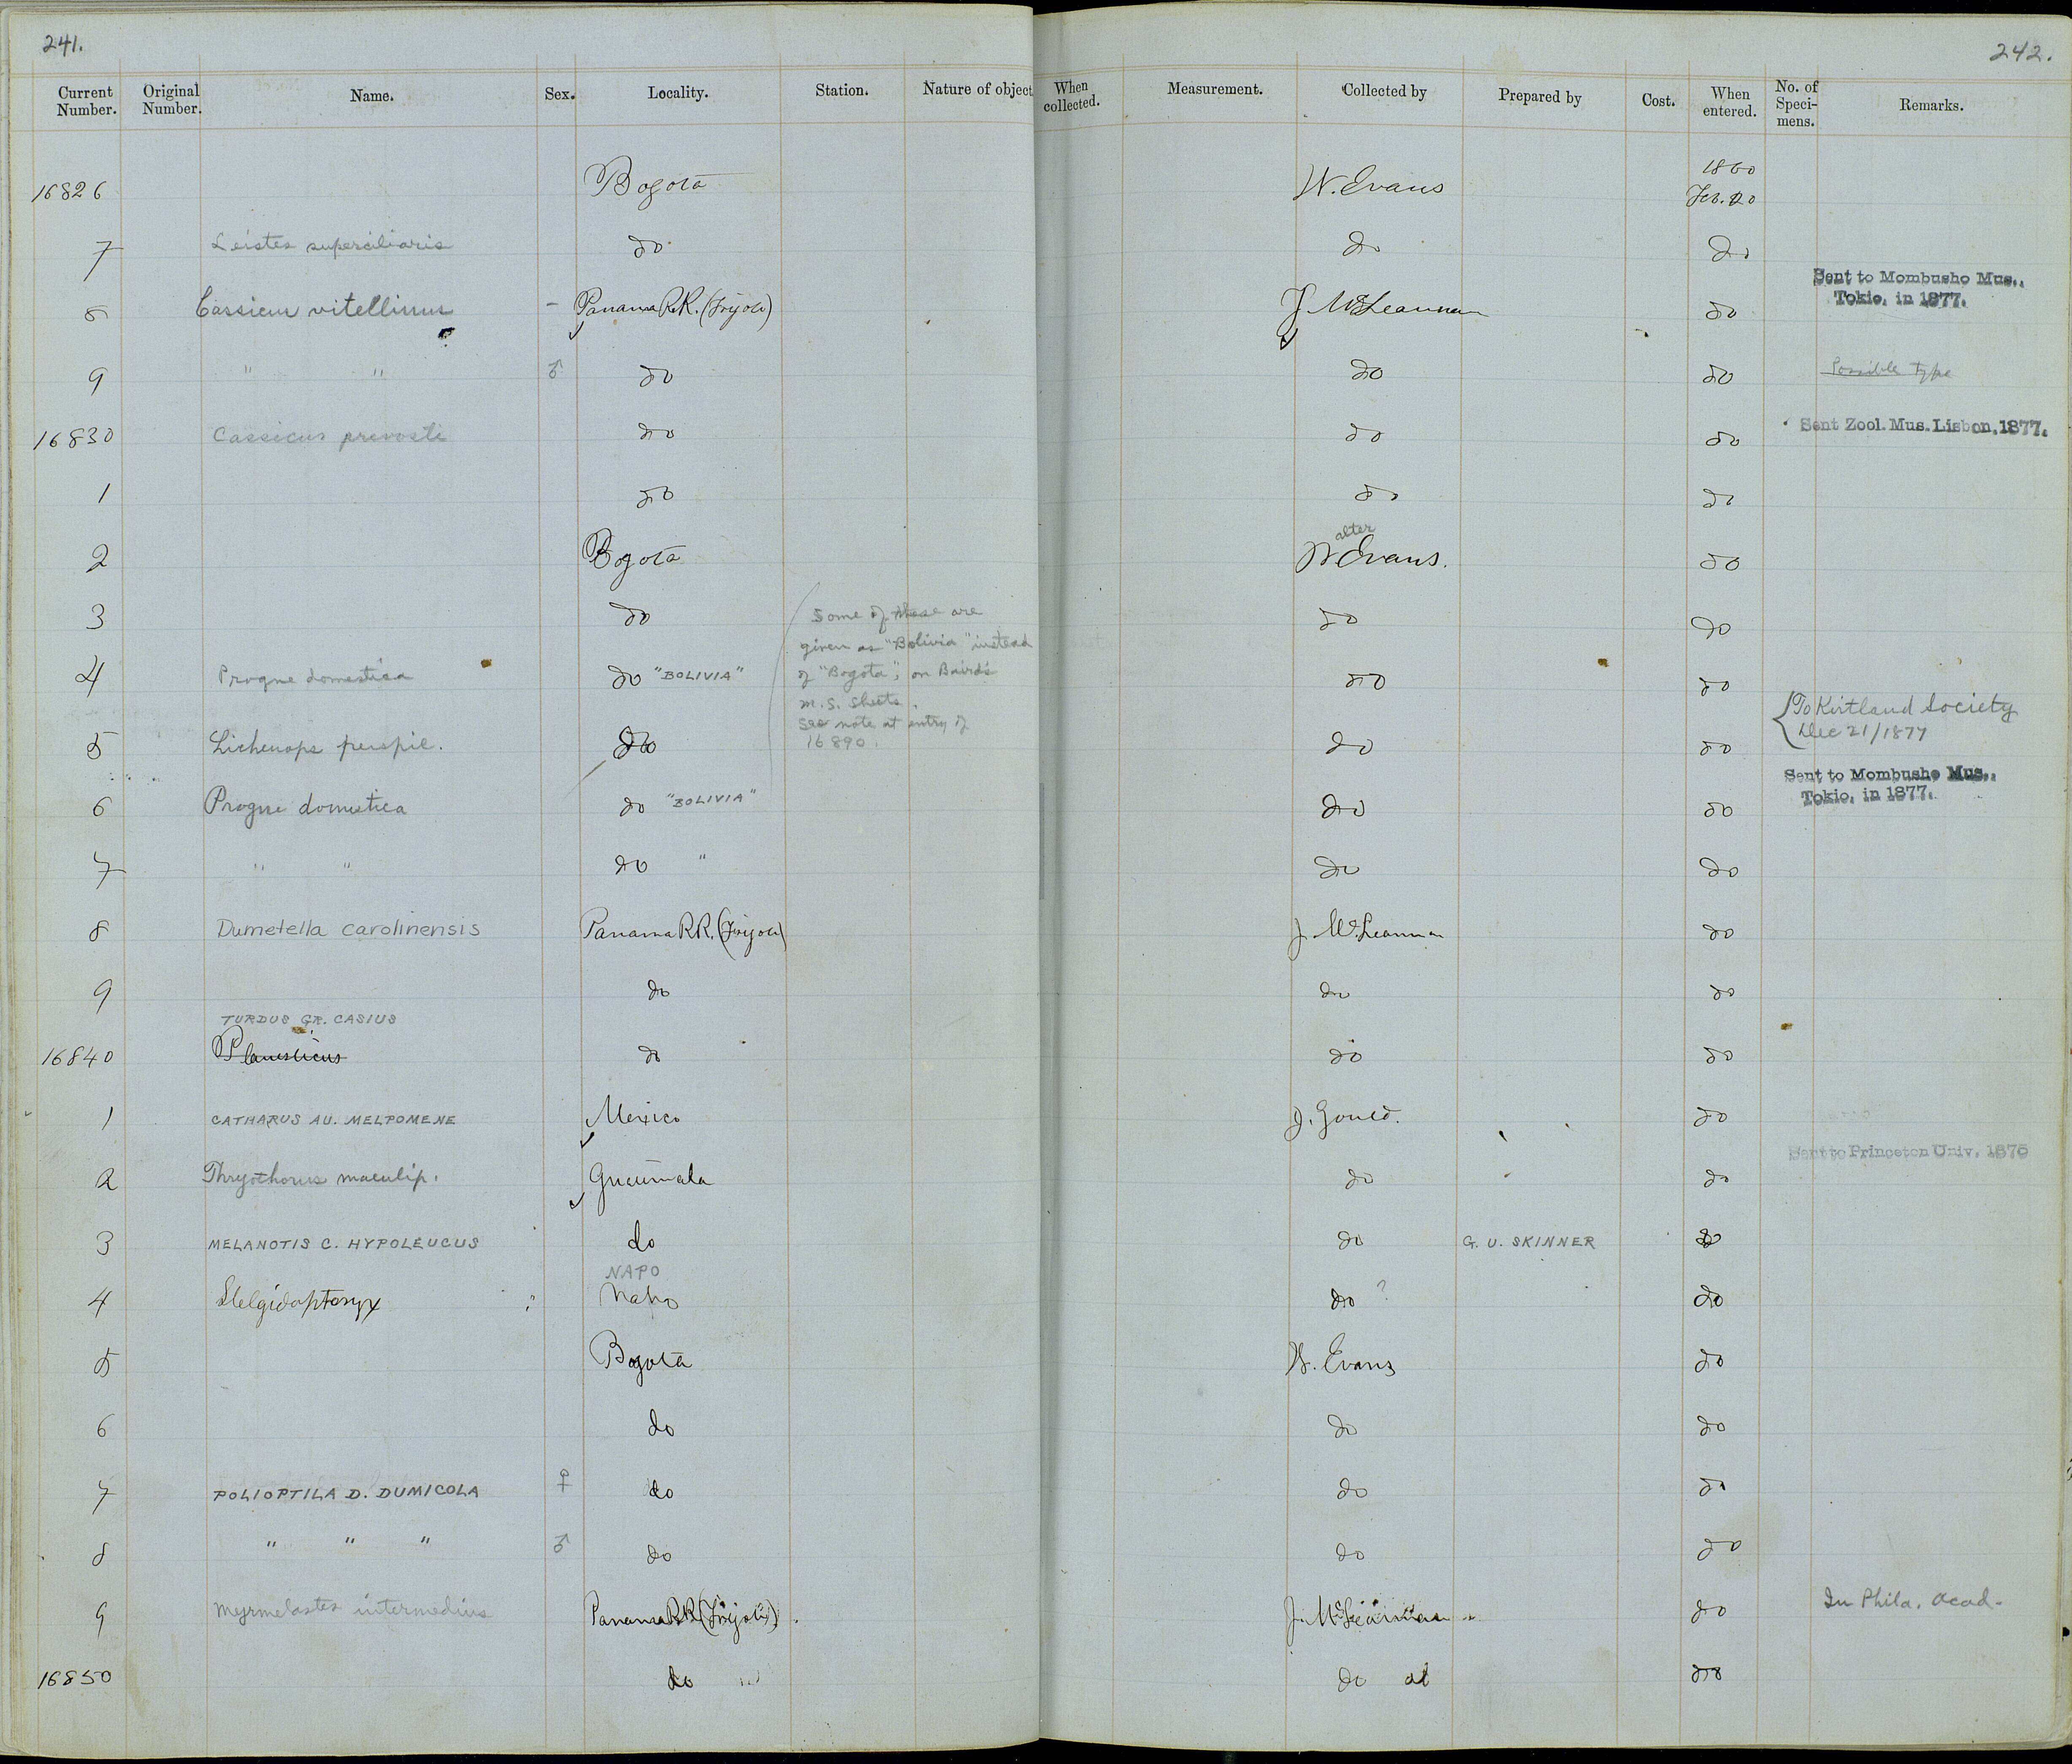 241.
242.
Current Number. Original Number. Name. Sex. Locality. Station. Nature of object When collected. Measurement. Collected by Prepared by Cost. When entered. No. of Speci-mens. Remarks.
16826 Bogota W. Evans 1860 Feb. 20
7 Leistes superciliaris do do do
8 Cassicus vitellinus - Panama R.R. (Frijoli) J McLeannan do Sent to Mombusho Mus., Tokio, in 1877.
9 " " ♂ do do do Possible type
16830 Cassicus prevosti do do do Sent Zool. Mus. Lisbon, 1877.
1 do do do
alter
2 Bogota W Evans. do
3 do do do
Some of these are
given as "Bolivia" instead
of "Bogota", on Baird's
M.S. Sheets.
See note at entry of
16890.
4 Progne domestica do "BOLIVIA" do do
5 Lichenops perspic. do do do To Kirtland Society Dec 21/1877
6 Progne domestica do "BOLIVIA" do do Sent to Mombusho Mus., Tokio, in 1877.
7 " " do " do do
8 Dumetella carolinensis Panama RR. (Frijoli) J McLeannan do
9 do do do
TURDUS GR. CASIUS
16840 Planesticus do do do
1 CATHARUS AU. MELPOMENE Mexico J. Gould. do
2 Thryothorus maculip. Guatimala do do Sent to Princeton Univ. 1875
3 MELANOTIS C. HYPOLEUCUS do do G. U. SKINNER do
NAPO
4 Stelgidopteryx Napo do ? do
5 Bogota W. Evans do
6 do do do
7 POLIOPTILA D. DUMICOLA ♀ do do do
8 " " " ♂ do do do
9 Myrmelastes intermedius Panama RR (Frijoli) J. McLeannan do In Phila. Acad.
16850 do do do